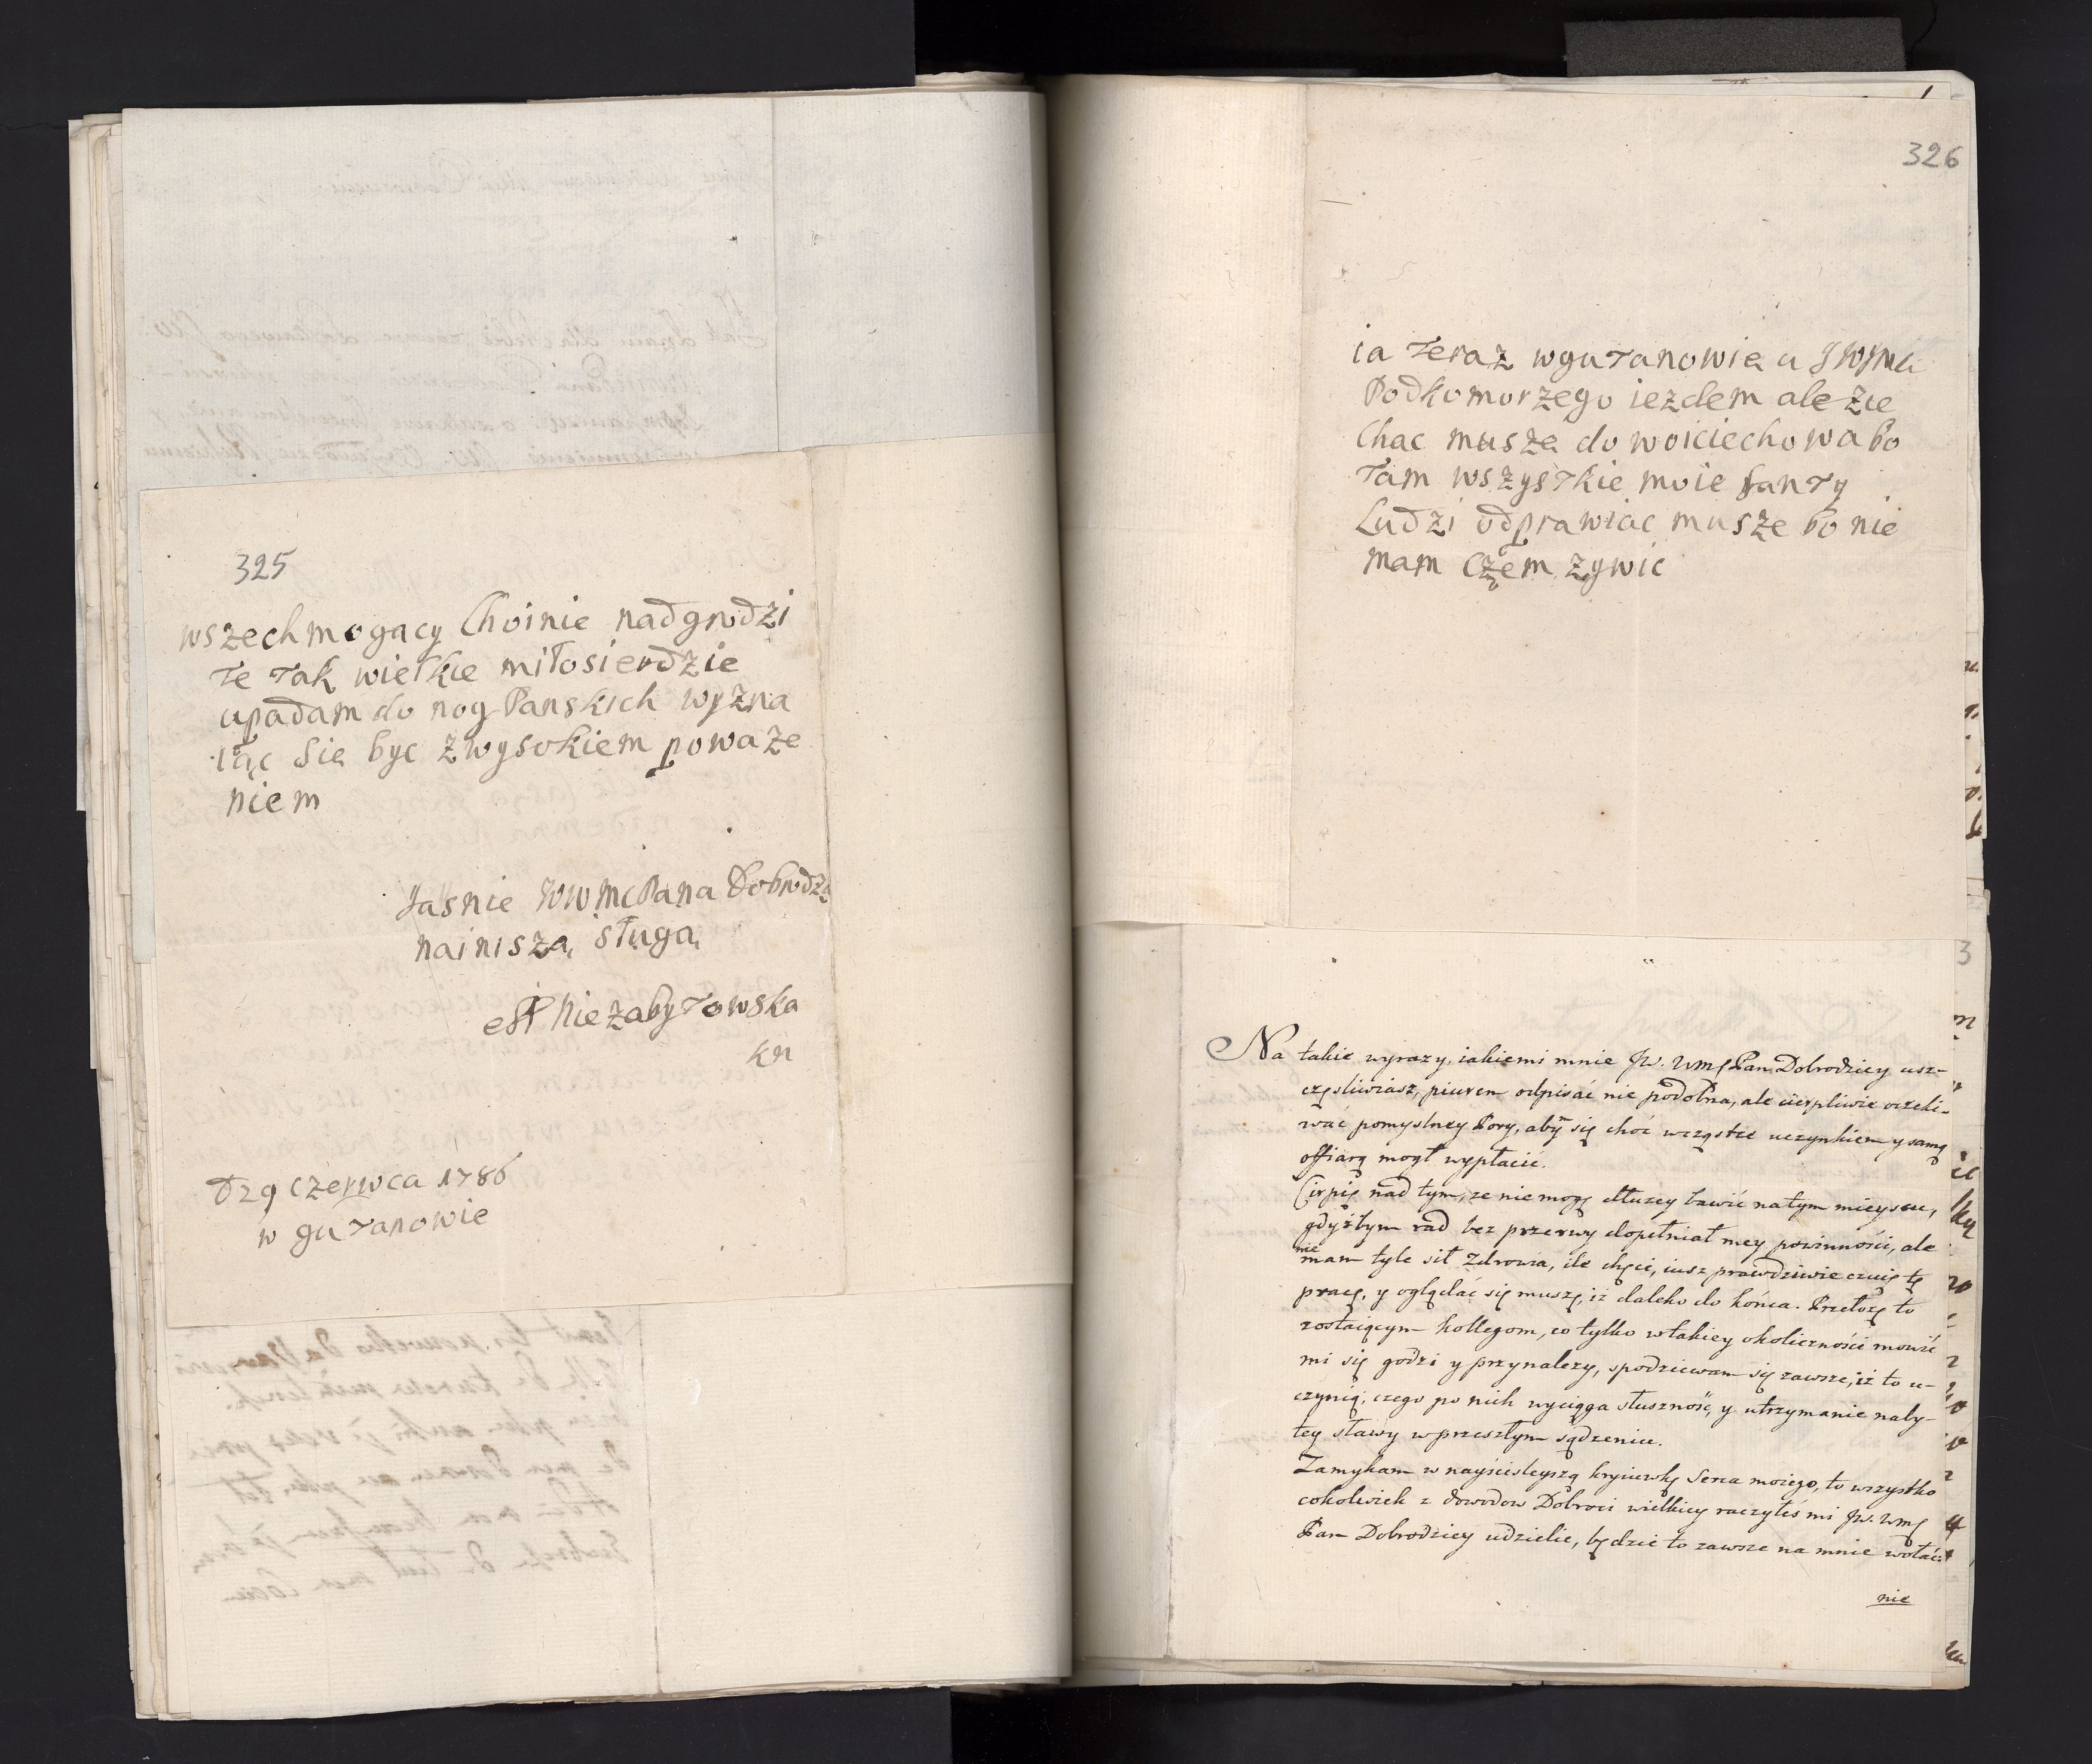 325
wszechmogący Choinie nadgrodzi
te tak wielkie miłosierdzie
upadam do nog Panskich wyzna
iąc Się byc z wysokiem powaze
niem
Jasnie WWMcPana Dobrodza
nainiszą sługą
Niezabytowska
D 29 czerwca 1786
w gutanowie
326
ia teraz wgutanowie u JWJMci
Podkomorzego iezdem ale zie
Chac muszę do woiciechowa bo
tam wszystkie moie fanty
Ludzi odprawiac musze bo nie
mam czem zywic
3
Na takie wyrazy, iakiemi mnie JW. WmC Pan Dobrodziey usz-
częsliwiasz, piurem odpisać nie podobna, ale cierpliwie oczeki-
wać pomyslney Pory, abym się choć wcząstce uczynkiem y samą
offiarą mogł wypłacić.
Cirpię nad tym, ze niemogę dłuzey bawić natym mieyscu,
gdyżbym rad bez przerwy dopełniał mey powinności, ale
nie
mam tyle sił Zdrowia, ile chęci, iusz prawdziwie czuię tę
pracę, y oglądać się muszę, iz daleko do końca. Przełozę to
zostaiącym kollegom, co tylko wtakiey okoliczności mowić
mi się godzi y przynalezy, spodziewam się zawsze, iż to u-
czynią, czego po nich wyciąga słuszność, y utrzymanie naby-
tey sławy w przeszłym sądzeniu.
Zamykam w nayścisleyszą kryiuwkę Serca moiego, to wszystko
cokolwiek z dowodow Dobroci wielkiey raczyłeś mi JW. WmC
Pan Dobrodziey udzielic, będzie to zawsze na mnie wołać:
nie